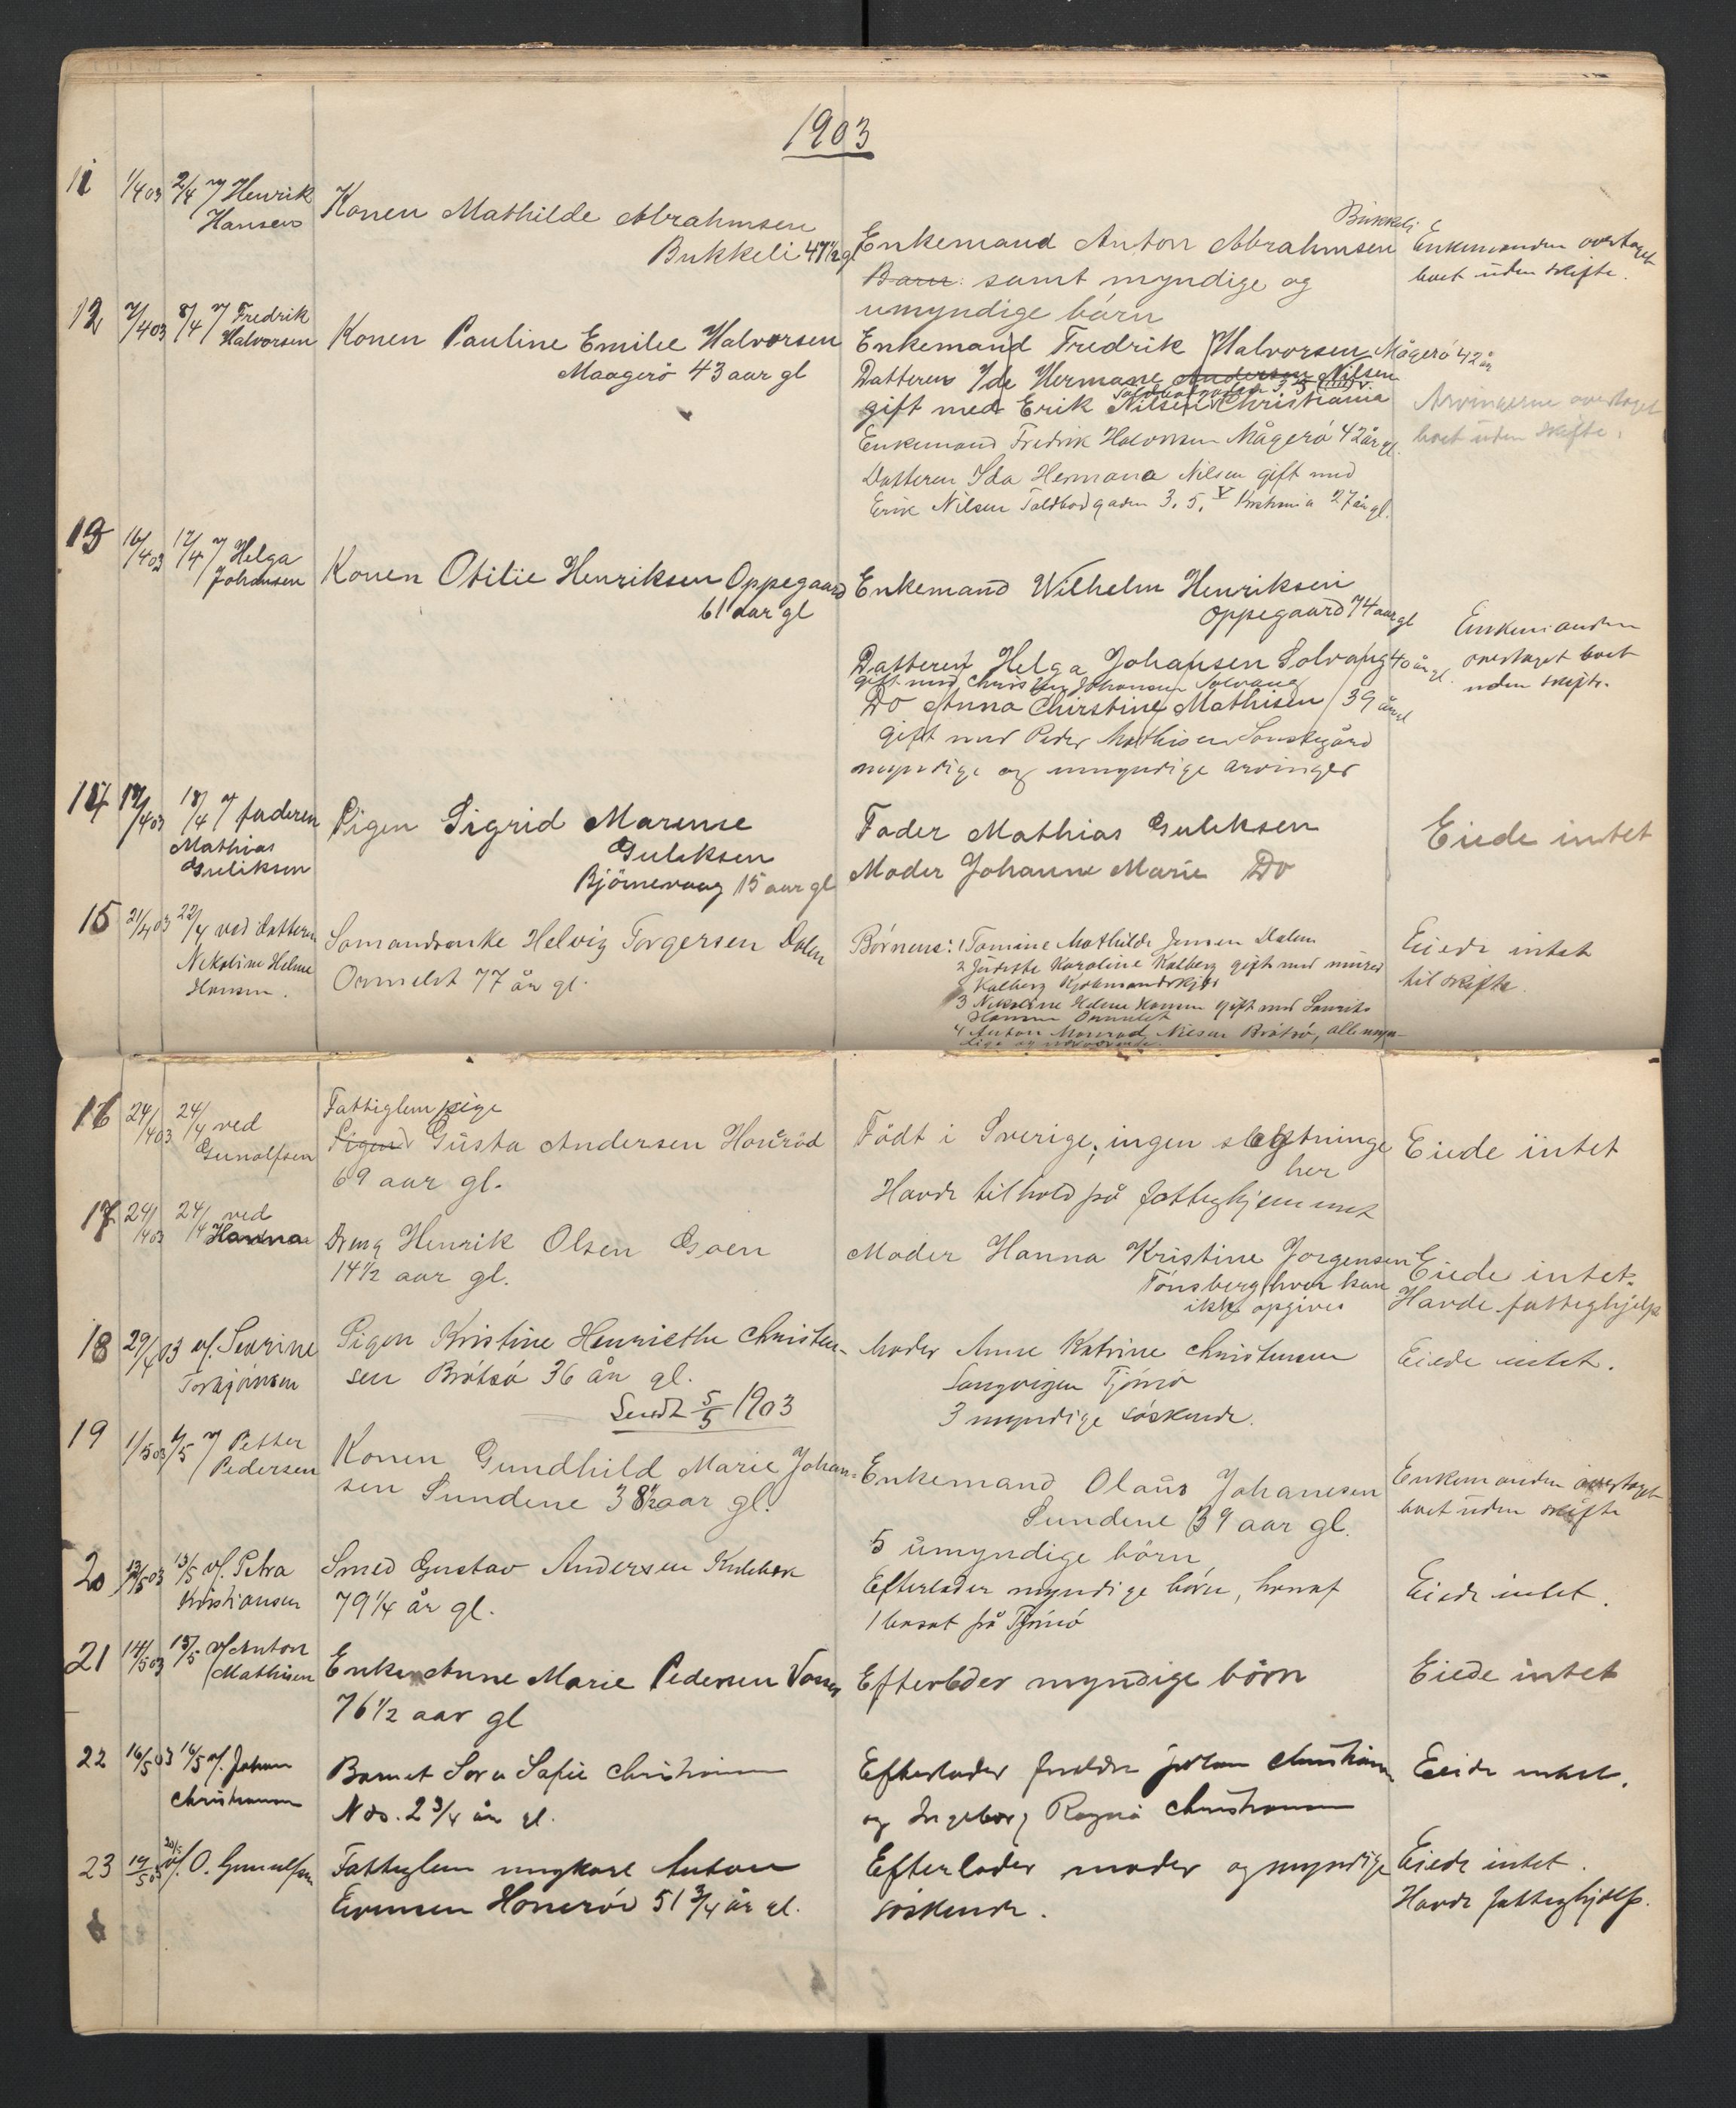 1903
11 1/4 03 2/4 v/ Henrik
Hansen
Konen Mathilde Abrahmsen
Bukkeli 47 1/2 gl
Bukkeli
Enkemand Anton Abrahmsen
Barn: samt myndige og
umyndige børn
Enkemanden overtaget
boet uden skifte.
12 7/4 03 8/4 v/ Fredrik
Halvorsen
Konen Pauline Emilie Halvorsen
Maagerö 43 aar gl
Enkemand Fredrik Halvorsen Mågerö 42 år
Datteren Ida Hermane Andersen Nilsen
gift med Erik Nilsen Christiania
Enkemand Fredrik Halvorsen Mågerö 42 år gl.
Datteren Ida Hermana Nilsen gift med
Erik Nilsen Toldbodgaden 3. 5. V Kristiania 27 år gl.
Arvingerne overtaget
boet uden skifte.
13 16/4 03 17/4 v/ Helga
Johansen
Konen Otilie Henriksen Oppegaard
61 aar gl
Enkemand Wilhelm Henriksen
Oppegaard 74 aar gl
Datteren Helga Johansen Solvang 40 år gl.
gift med Christian Johansen Solvang
Do Anna Chirstine Mathisen 39 år gl
gift med Peder Mathisen
myndige og umyndige arvinger
Enkemanden
overtaget boet
uden skifte.
14 17/4 03 18/4 v/ faderen
Mathias
Guliksen
Pigen Sigrid Marense
Guleksen
Björnevaag 15 aar gl
Fader Mathias Guleksen
Moder Johanne Marie Do
Eiede intet
15 21/4 03 22/4 ved datteren
Nikoline Helene
Hansen.
Somandsenke Helvig Torgersen Dalen
Ormelet 77 år gl.
Børnene: 1 Tomine Mathilde Jensen Dalen
2 Judithe Karoline Kalberg gift med murer
Kalberg
3 Nikoline Helene Hansen gift med Laurits
Hansen Ormelet
4 Anton Monrad Nilsen Bråtsö, alle myn-
dige og nærværende.
Eiede intet
til skifte.
16 24/4 03 24/4 ved
Gunolfsen
Fattiglem pige
Pigen Gusta Andersen Honeröd
69 aar gl.
Födt i Sverige; ingen slegtninge
her
Havde tilhold på fattighjemmet
Eiede intet
17 24/4 03 24/4 ved
Hanna
Dreng Henrik Olsen Goen
14 1/2 aar gl.
Moder Hanna Kristine Jorgensen
Tönsberg, hvor kan
ikke opgives
Eiede intet.
Havde fattighjelp
18 29/4 03 v/. Severine
Torbjörnsen
Pigen Kristine Henriette Christen-
sen Bråtsö 36 år gl.
Sendt 5/5 1903
Moder Anne Katrine Christensen
Sangvigen Tjömö
3 myndige söskende.
Eiede intet.
19 1/5 03 6/5 v/ Petter
Pedersen
Konen Gundhild Marie Johan-
sen Sundene 38 1/2 aar gl.
Enkemand Olaus Johanesen
Sundene 39 aar gl.
5 umyndige börn
Enkemanden overtaget
boet uden skifte
20 13/5 03 13/5 v/. Petra
Kristiansen
Smed Gustav Andersen
79 1/4 år gl.
Efterlader myndige börn, hvoraf
1 bosat på Tjömö
Eiede intet.
21 14/5 03 15/5 v/ Anton
Mathisen
Enken Anne Marie Pedersen
76 1/2 aar gl
Efterlader myndige börn
Eiede intet
22 16/5 03 16/5 v/. Johan
Christiansen
Barnet Sofie Christiansen
Næs. 2 3/4 år gl.
Efterlader foreldre Johan Christiansen
og Ingeborg Ragna Christiansen
Eiede intet.
23 19/5 03 20/5 v/. O. Gunulfsen
Fattiglem ungkarl Anton
Evensen Honeröd 51 3/4 år gl.
Efterlader moder og myndige
söskende.
Eiede intet.
Havde fattighjelp.